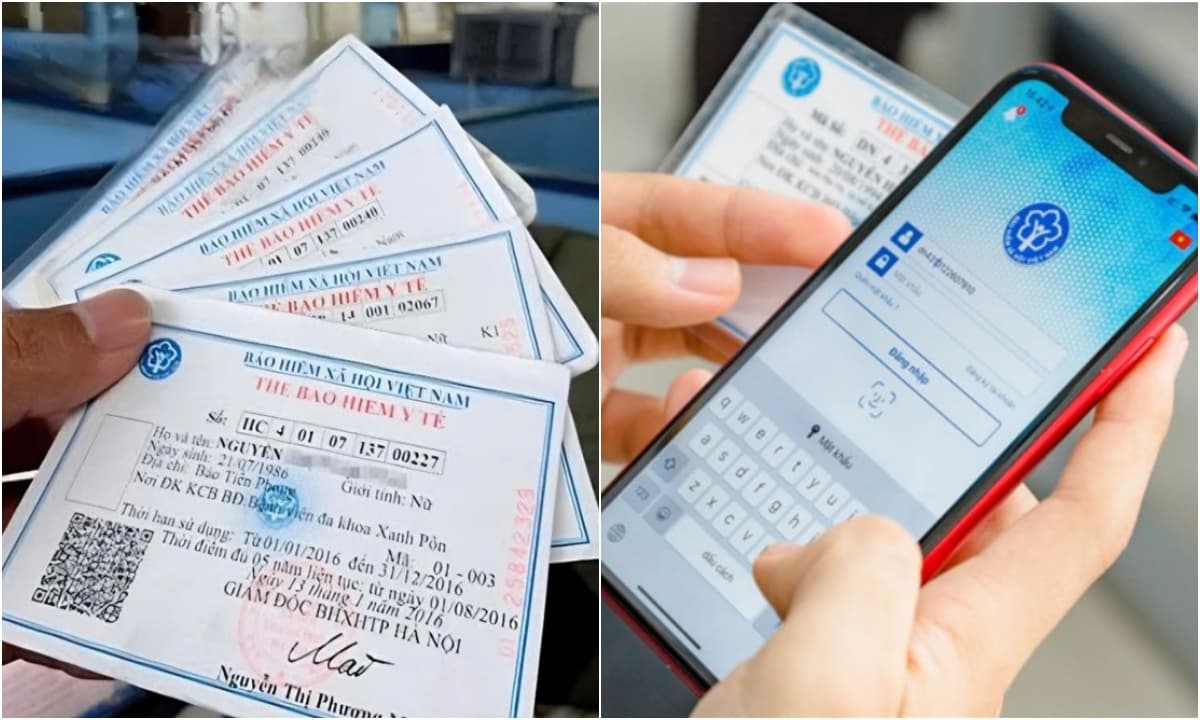 BẢO HIỂM XÃ HỘI VIỆT NAM
THẺ BẢO HIỂM Y TẾ
07 137 00240
BẢO HIỂM XÃ HỘI VIỆT NAM
THẺ BẢO HIỂM Y TẾ
01 07 137 00240
BẢO HIỂM XÃ HỘI VIỆT NAM
THẺ BẢO HIỂM Y TẾ
14 001 02067
Nữ K1
BẢO HIỂM XÃ HỘI VIỆT NAM
THẺ BẢO HIỂM Y TẾ
Số: HC 4 01 07 137 00227
Họ và tên: NGUYỄN
Ngày sinh: 21/07/1986 Giới tính: Nữ
Địa chỉ: Báo Tiền Phong
Nơi ĐK KCB BĐ: Bệnh viện đa khoa Xanh Pôn
Mã: 01 - 003
Thời hạn sử dụng: Từ 01/01/2016 đến 31/12/2016
Thời điểm đủ 05 năm liên tục: từ ngày 01/08/2016
Ngày 13 tháng 1 năm 2016
GIÁM ĐỐC BHXHTP HÀ NỘI
Nguyễn Thị Phương
01 25842323
BẢO HIỂM
THẺ BẢ
Mã Số: DN 4
Họ và tên: NGUYỄN
Ngày sinh: 20/08/1994
Nơi ĐK KCB
16:42
Mật khẩu
Quên mật khẩu ?
Đăng ký tài khoản
Đăng nhập
Mật khẩu
q w e r t y u
a s d f g h
z x c v
123
dấu cách